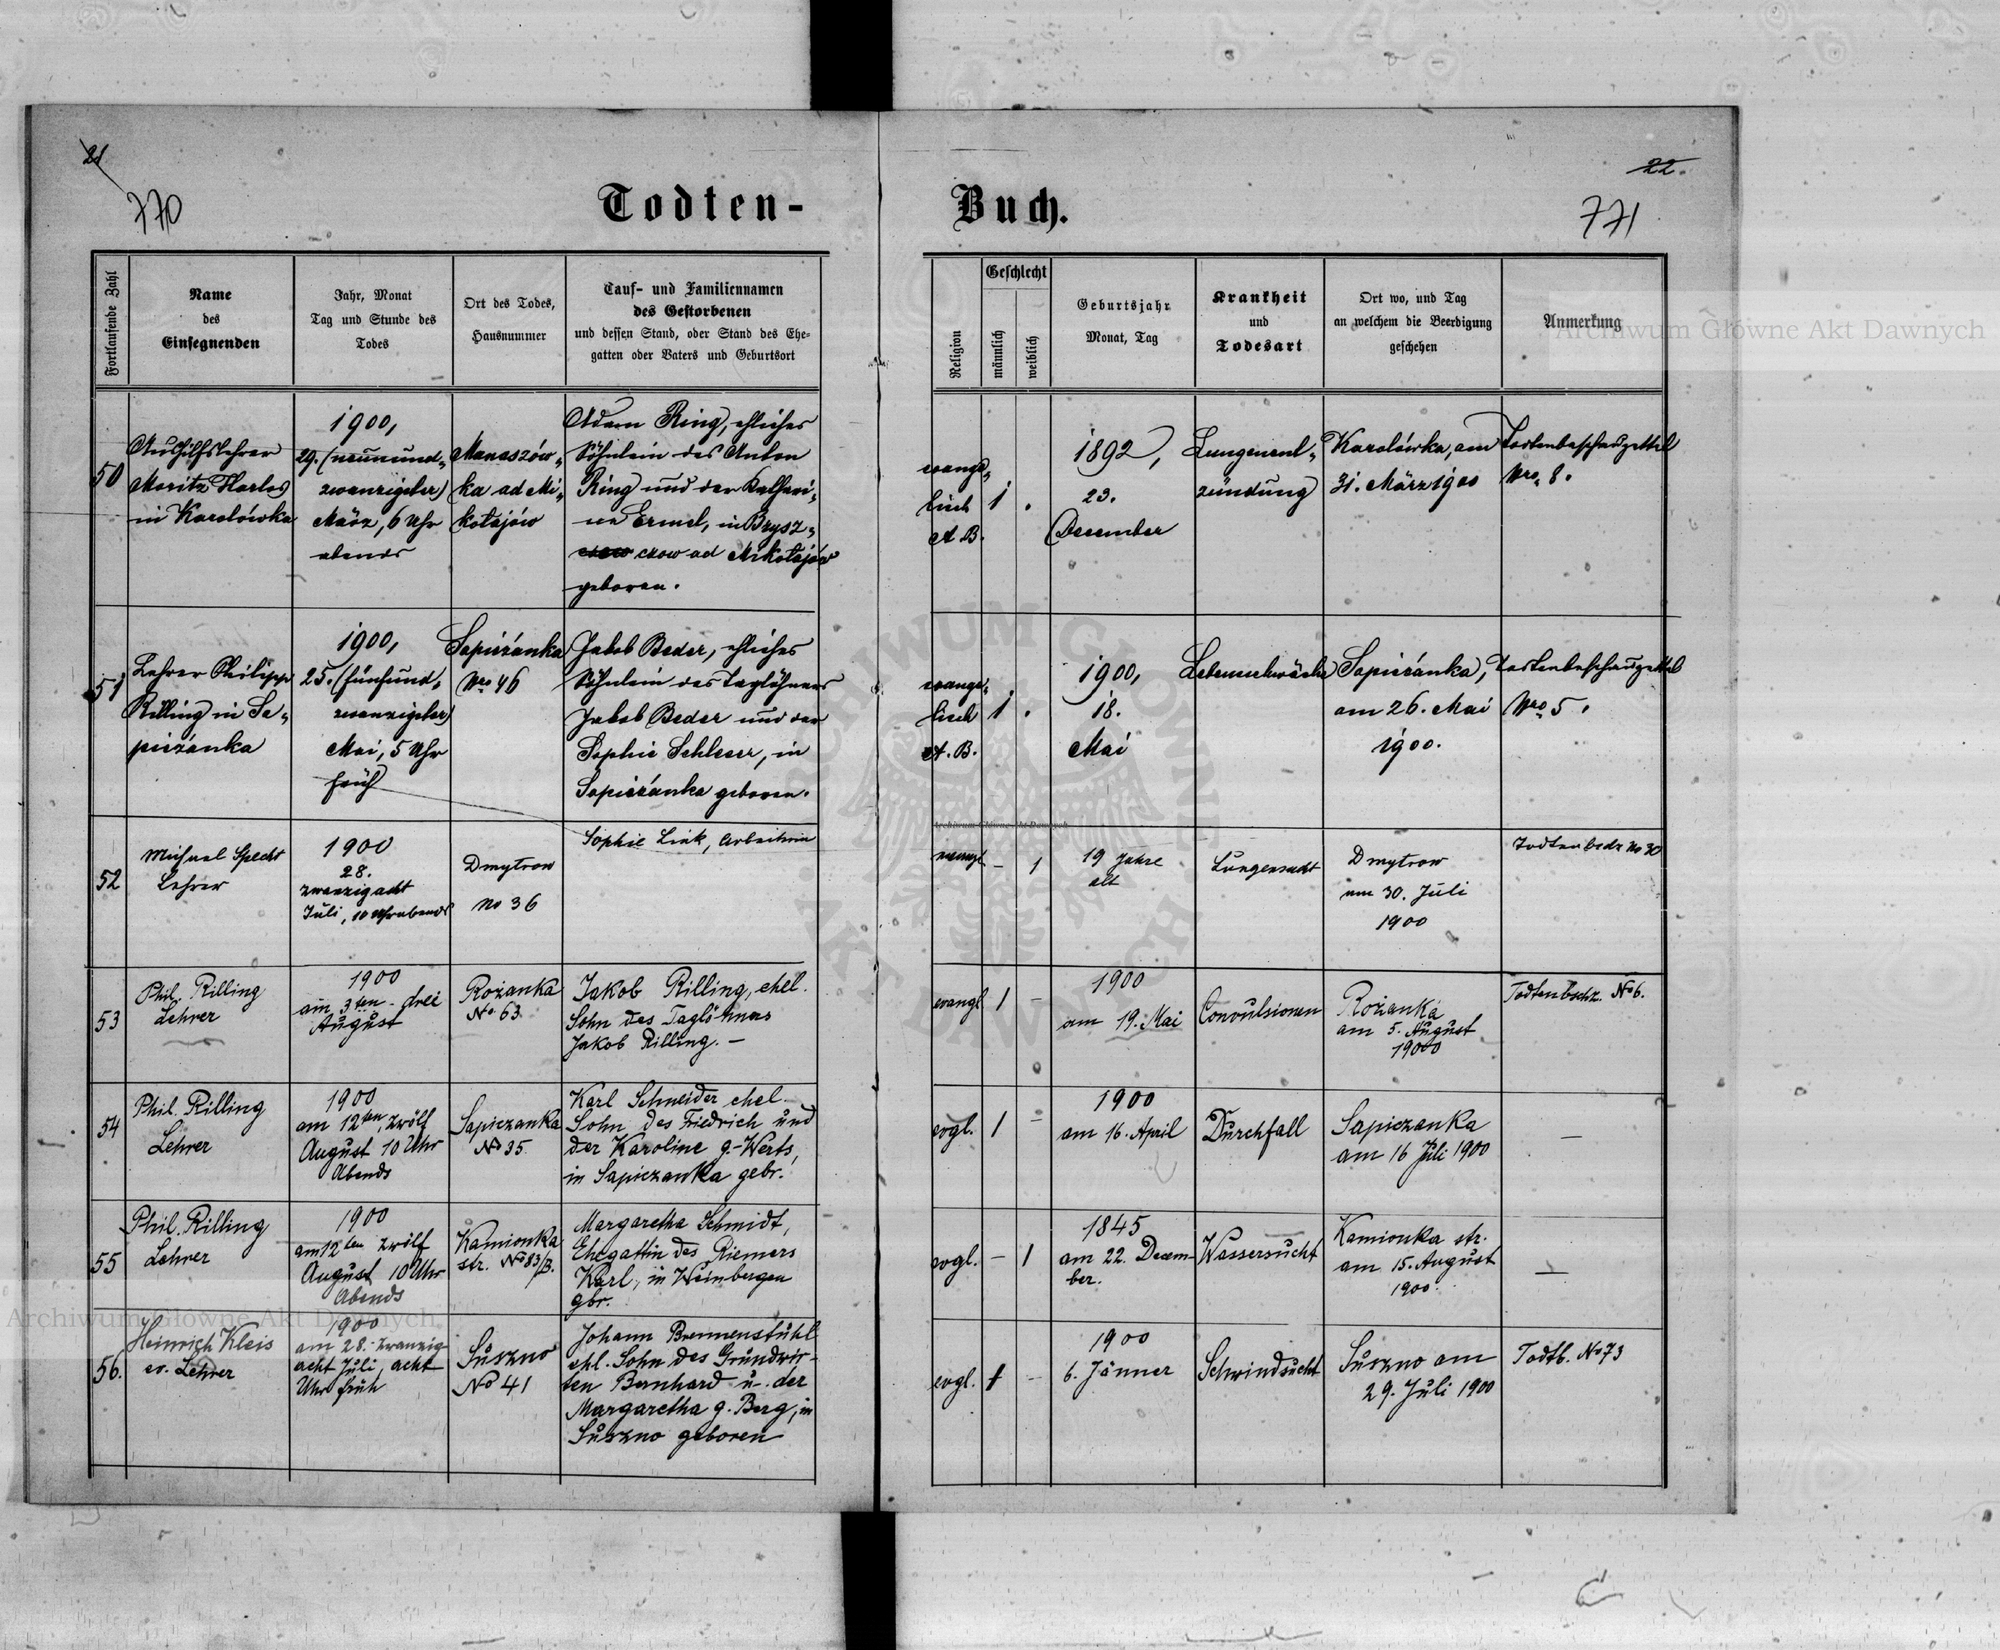 21
770
Todten-
Fortlaufende Zahl
Name
des
Einsegnenden
Jahr, Monat
Tag und Stunde des
Todes
Ort des Todes,
Hausnummer
Tauf- und Familiennamen
des Gestorbenen
und dessen Stand, oder Stand des Ehe-
gatten oder Vaters und Geburtsort
50
Aushilfslehrer
Moritz Harlos
in Karolówka
1900,
29. (neunund-
zwanzigster)
März, 6 Uhr
abends
Manaszów-
ka ad Mi-
kołajów
Adam Ring, ehliches
Söhnlein des Anton
Ring und der Kathari-
na Ermel, in Brysz-
czow ad Mikołajów
geboren.
51
Lehrer Philipp
Rilling in Sa-
pieżanka
1900,
25. (fünfund-
zwanzigster)
Mai, 5 Uhr
früh
Sapieżanka
Nro 46
Jakob Beder, ehliches
Söhnlein des Taglöhners
Jakob Beder und der
Sophie Schlesser, in
Sapieżanka geboren.
52
Michael Specht
Lehrer
1900
28.
zwanzigacht
Juli, 10 Uhr abends
Dmytrow
No 36
Sophie Link, Arbeiterin
53
Phil. Rilling
Lehrer
1900
am 3ten drei
August
Rożanka
No 63
Jakob Rilling, ehel.
Sohn des Taglöhners
Jakob Rilling. —
54
Phil. Rilling
Lehrer
1900
am 12ten, zwölf
August 10 Uhr
Abends
Sapiezanka
No 35
Karl Schneider ehel.
Sohn des Friedrich und
der Karoline g. Werts,
in Sapiezanka gebr.
55
Phil. Rilling
Lehrer
1900
am 12ten zwölf
August 10 Uhr
Abends
Kamionka
str. No 83/B.
Margaretha Schmidt,
Ehegattin des Riemers
Karl, in Weinbergen
gbr.
56.
Heinrich Kleis
ev. Lehrer
1900
am 28. zwanzig
acht Juli, acht
Uhr früh
Suszno
No 41
Johann Brennenstuhl
ehl. Sohn des Grundwir-
ten Bernhard u. der
Margaretha g. Berg, in
Suszno geboren
22.
771
Buch.
Religion
Geschlecht
männlich
weiblich
Geburtsjahr
Monat, Tag
Krankheit
und
Todesart
Ort wo, und Tag
an welchem die Beerdigung
geschehen
Anmerkung
evange-
lisch
A. B.
1
1892,
23.
December
Lungenent-
zündung
Karolówka, am
31. März 1900
Todtenbeschauzettel
Nro 8.
evange-
lisch
A. B.
1
1900,
18.
Mai
Lebensschwäche
Sapieżanka,
am 26. Mai
1900.
Todtenbeschauzettel
Nro 5.
evangl
–
1
19 Jahre
alt
Lungensucht
Dmytrow
am 30. Juli
1900
No 30
evangl
1
–
1900
am 19. Mai
Convulsionen
Rożanka
am 5. August
1900
Todtenbschz. No 6.
evgl.
1
–
1900
am 16. April
Durchfall
Sapiezanka
am 16 Juli 1900
—
evgl.
–
1
1845
am 22. Decem-
ber.
Wassersucht
Kamionka str.
am 15. August
1900.
—
evgl.
1
–
1900
6. Jänner
Schwindsucht
Suszno am
29. Juli 1900
Todtb. No 73
Archiwum Główne Akt Dawnych
Archiwum Główne Akt Dawnych
Archiwum Główne Akt Dawnych
ARCHIWUM GŁÓWNE AKT DAWNYCH